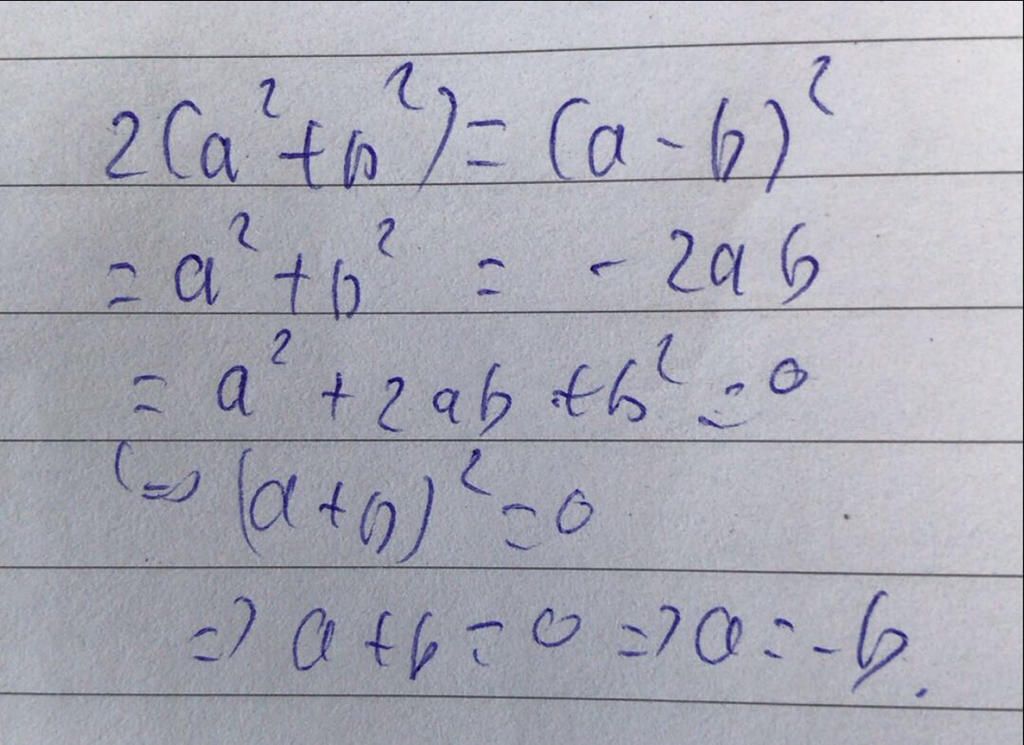 2(a²+b²)=(a-b)²
= a²+b² = -2ab
= a²+2ab+b²=0
(=> (a+b)²=0
=> a+b=0 => a=-b.